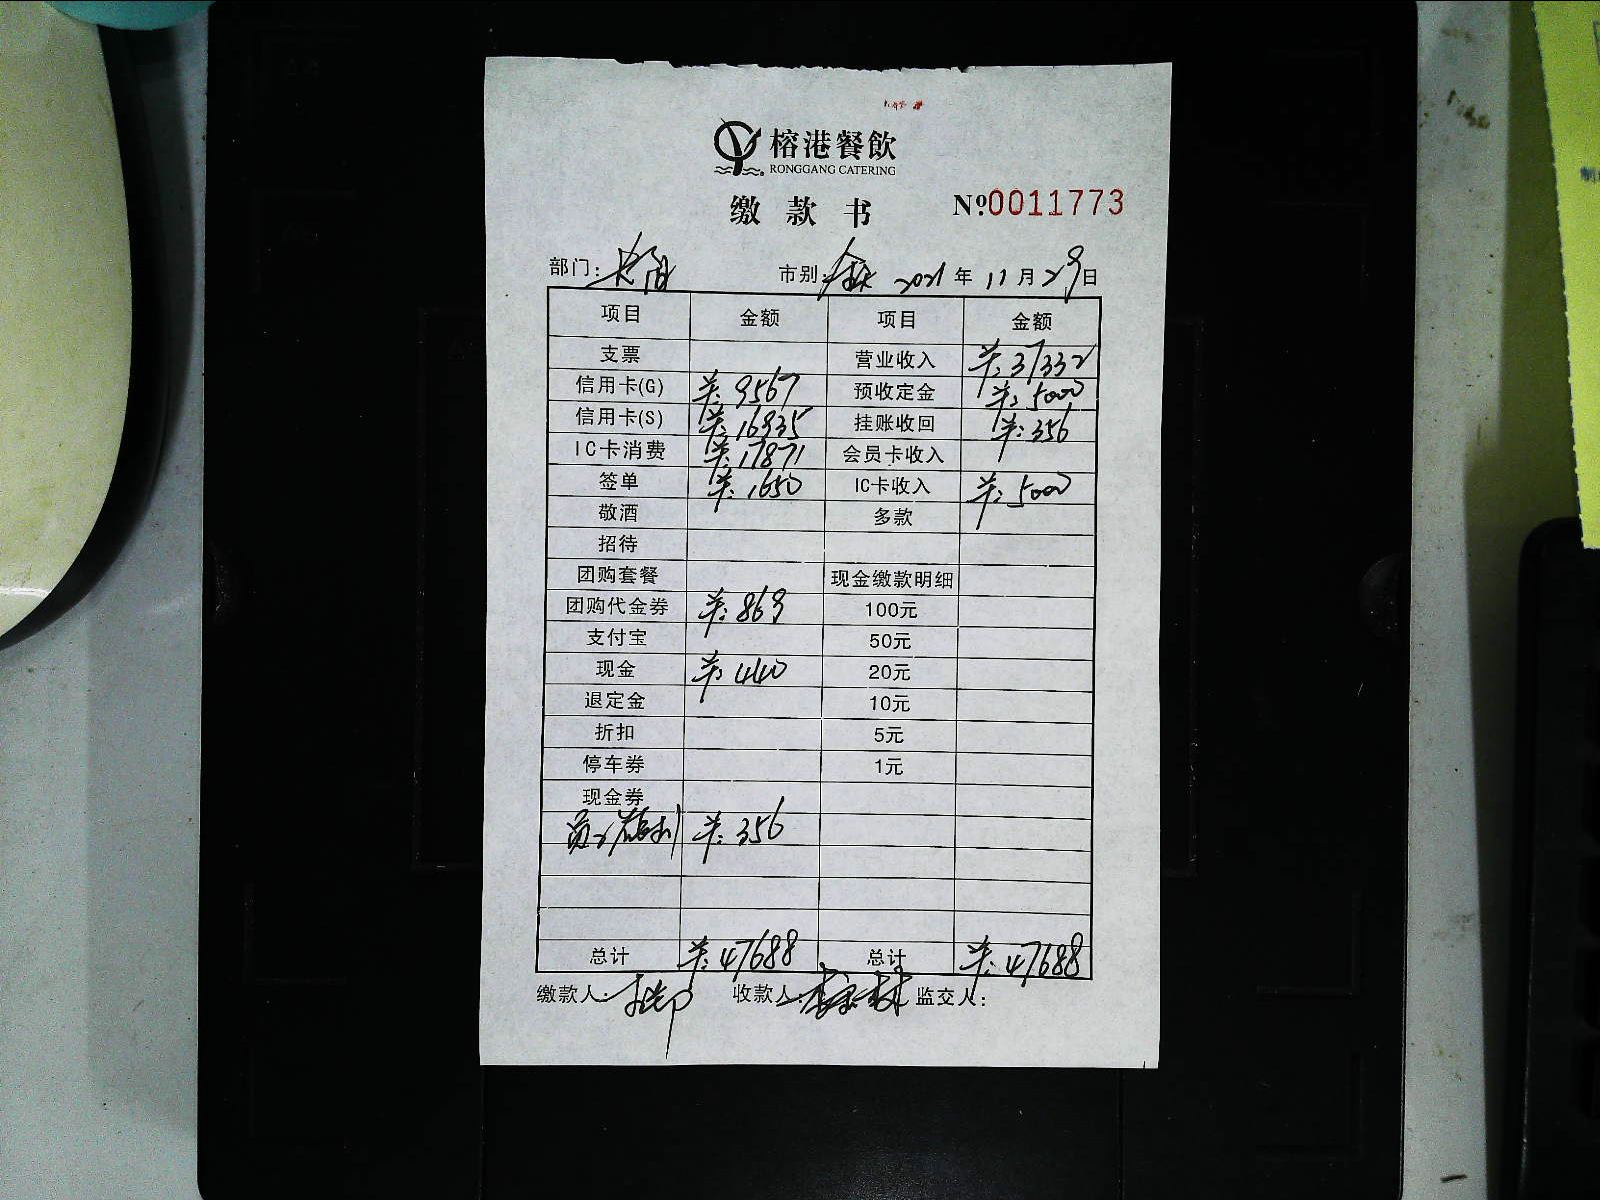 榕港餐飲
RONGGANG CATERING
缴款书 Nº0011773
部门: 市别: 2021年11月29日
项目 金额 项目 金额
支票 营业收入 ¥:37332
信用卡(G) ¥:9567 预收定金 ¥:5000
信用卡(S) ¥:16935 挂账收回 ¥:356
IC卡消费 ¥:17871 会员卡收入
签单 ¥:1650 IC卡收入 ¥:5000
敬酒 多款
招待
团购套餐 现金缴款明细
团购代金券 ¥:869 100元
支付宝 50元
现金 ¥:440 20元
退定金 10元
折扣 5元
停车券 1元
现金券
员工福利 ¥:356
总计 ¥:47688 总计 ¥:47688
缴款人: 收款人: 监交人: